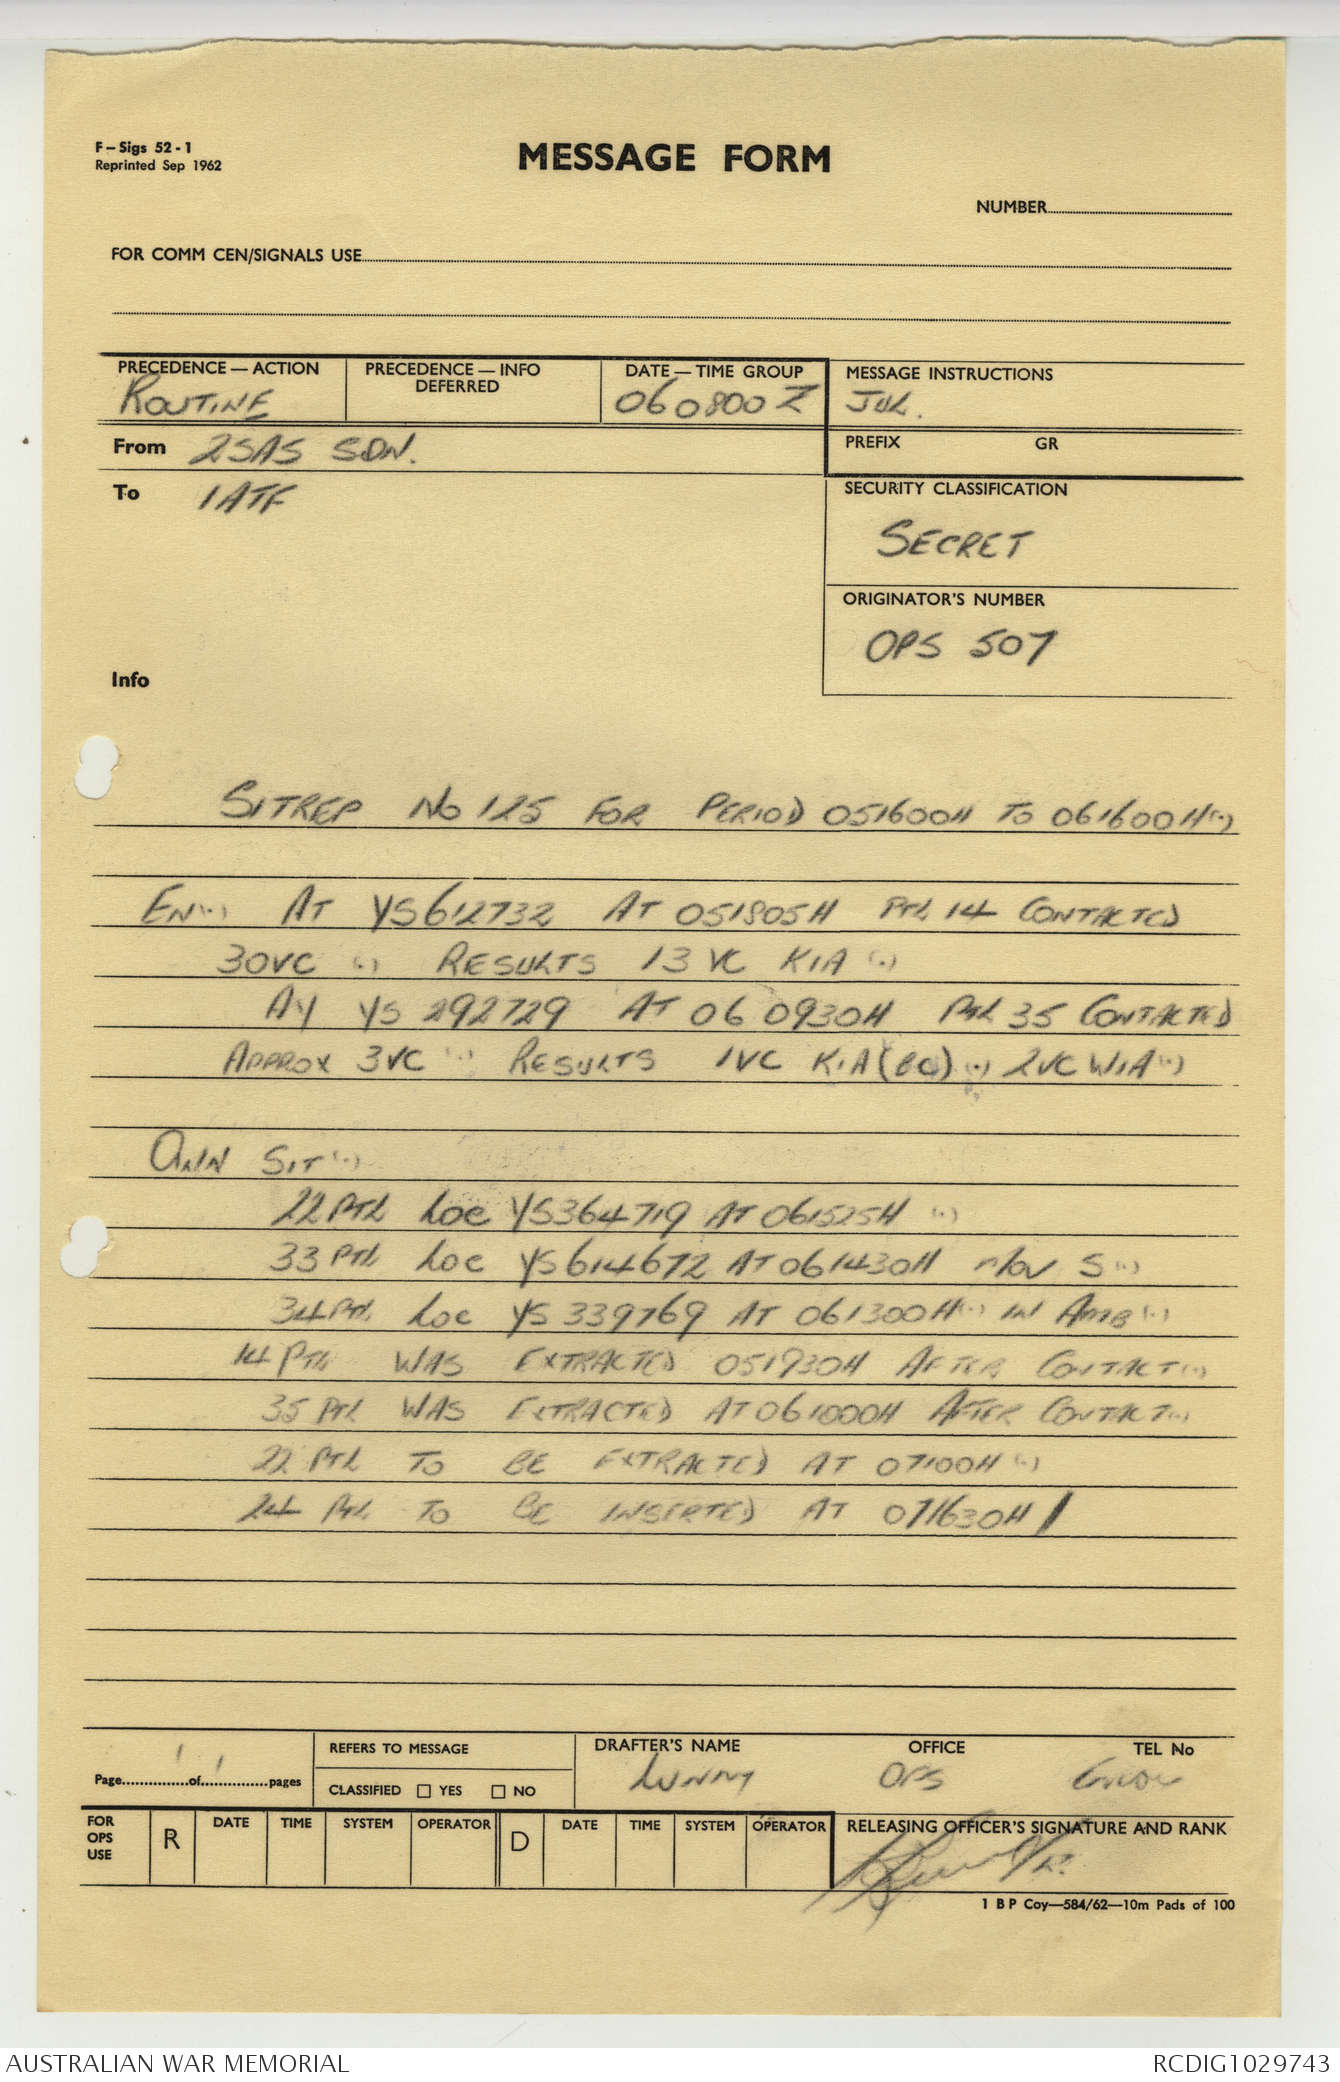 F – Sigs 52 - 1
Reprinted Sep 1962
MESSAGE FORM
NUMBER
FOR COMM CEN/SIGNALS USE
PRECEDENCE — ACTION
ROUTINE
PRECEDENCE — INFO
DEFERRED
DATE — TIME GROUP
060800Z
MESSAGE INSTRUCTIONS
JUL.
From 2SAS SQN.
PREFIX GR
To 1ATF
SECURITY CLASSIFICATION
SECRET
ORIGINATOR'S NUMBER
OPS 507
Info
SITREP No 125 FOR PERIOD 051600H TO 061600H(.)
EN(.) AT YS612732 AT 051805H PTL 14 CONTACTED
30VC (.) RESULTS 13 VC KIA (.)
AY YS 292729 AT 06 0930H PTL 35 CONTACTED
APPROX 3VC (.) RESULTS 1VC KIA (BC) (.) 2VC WIA (.)
OWN SIT (.)
22 PTL LOC YS364719 AT 061525H (.)
33 PTL LOC YS614672 AT 061430H MOV S (.)
34 PTL LOC YS 339769 AT 061300H (.) IN AMB (.)
14 PTL WAS EXTRACTED 051930H AFTER CONTACT (.)
35 PTL WAS EXTRACTED AT 061000H AFTER CONTACT (.)
22 PTL TO BE EXTRACTED AT 07100H (.)
24 PTL TO BE INSERTED AT 071630H /
Page 1 of 1 pages
REFERS TO MESSAGE
CLASSIFIED YES NO
DRAFTER'S NAME OFFICE TEL No
LUNNY OPS
FOR OPS USE
R DATE TIME SYSTEM OPERATOR D DATE TIME SYSTEM OPERATOR
RELEASING OFFICER'S SIGNATURE AND RANK
1 B P Coy—584/62—10m Pads of 100
AUSTRALIAN WAR MEMORIAL RCDIG1029743